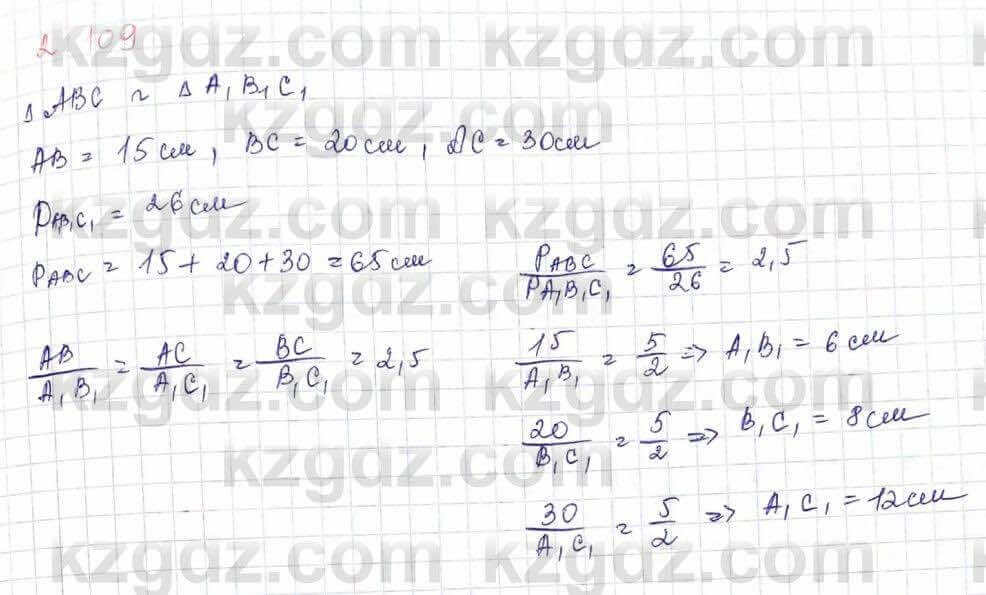 2 109
Δ ABC ~ Δ A₁B₁C₁
AB = 15 см, BC = 20 см, AC = 30 см
P_AB₁C₁ = 26 см
P_ABC = 15 + 20 + 30 = 65 см
P_ABC / P_A₁B₁C₁ = 65/26 = 2,5
AB/A₁B₁ = AC/A₁C₁ = BC/B₁C₁ = 2,5
15/A₁B₁ = 5/2 => A₁B₁ = 6 см
20/B₁C₁ = 5/2 => B₁C₁ = 8 см
30/A₁C₁ = 5/2 => A₁C₁ = 12 см
kzgdz.com kzgdz.com
kzgdz.com
kzgdz.com kzgdz.com
kzgdz.com
kzgdz.com kzgdz.com
kzgdz.com
kzgdz.com kzgdz.com